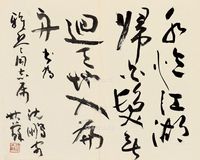 永憶江湖
歸白髮欲
迴天地入扁
舟 書為
同志屬
沈鵬